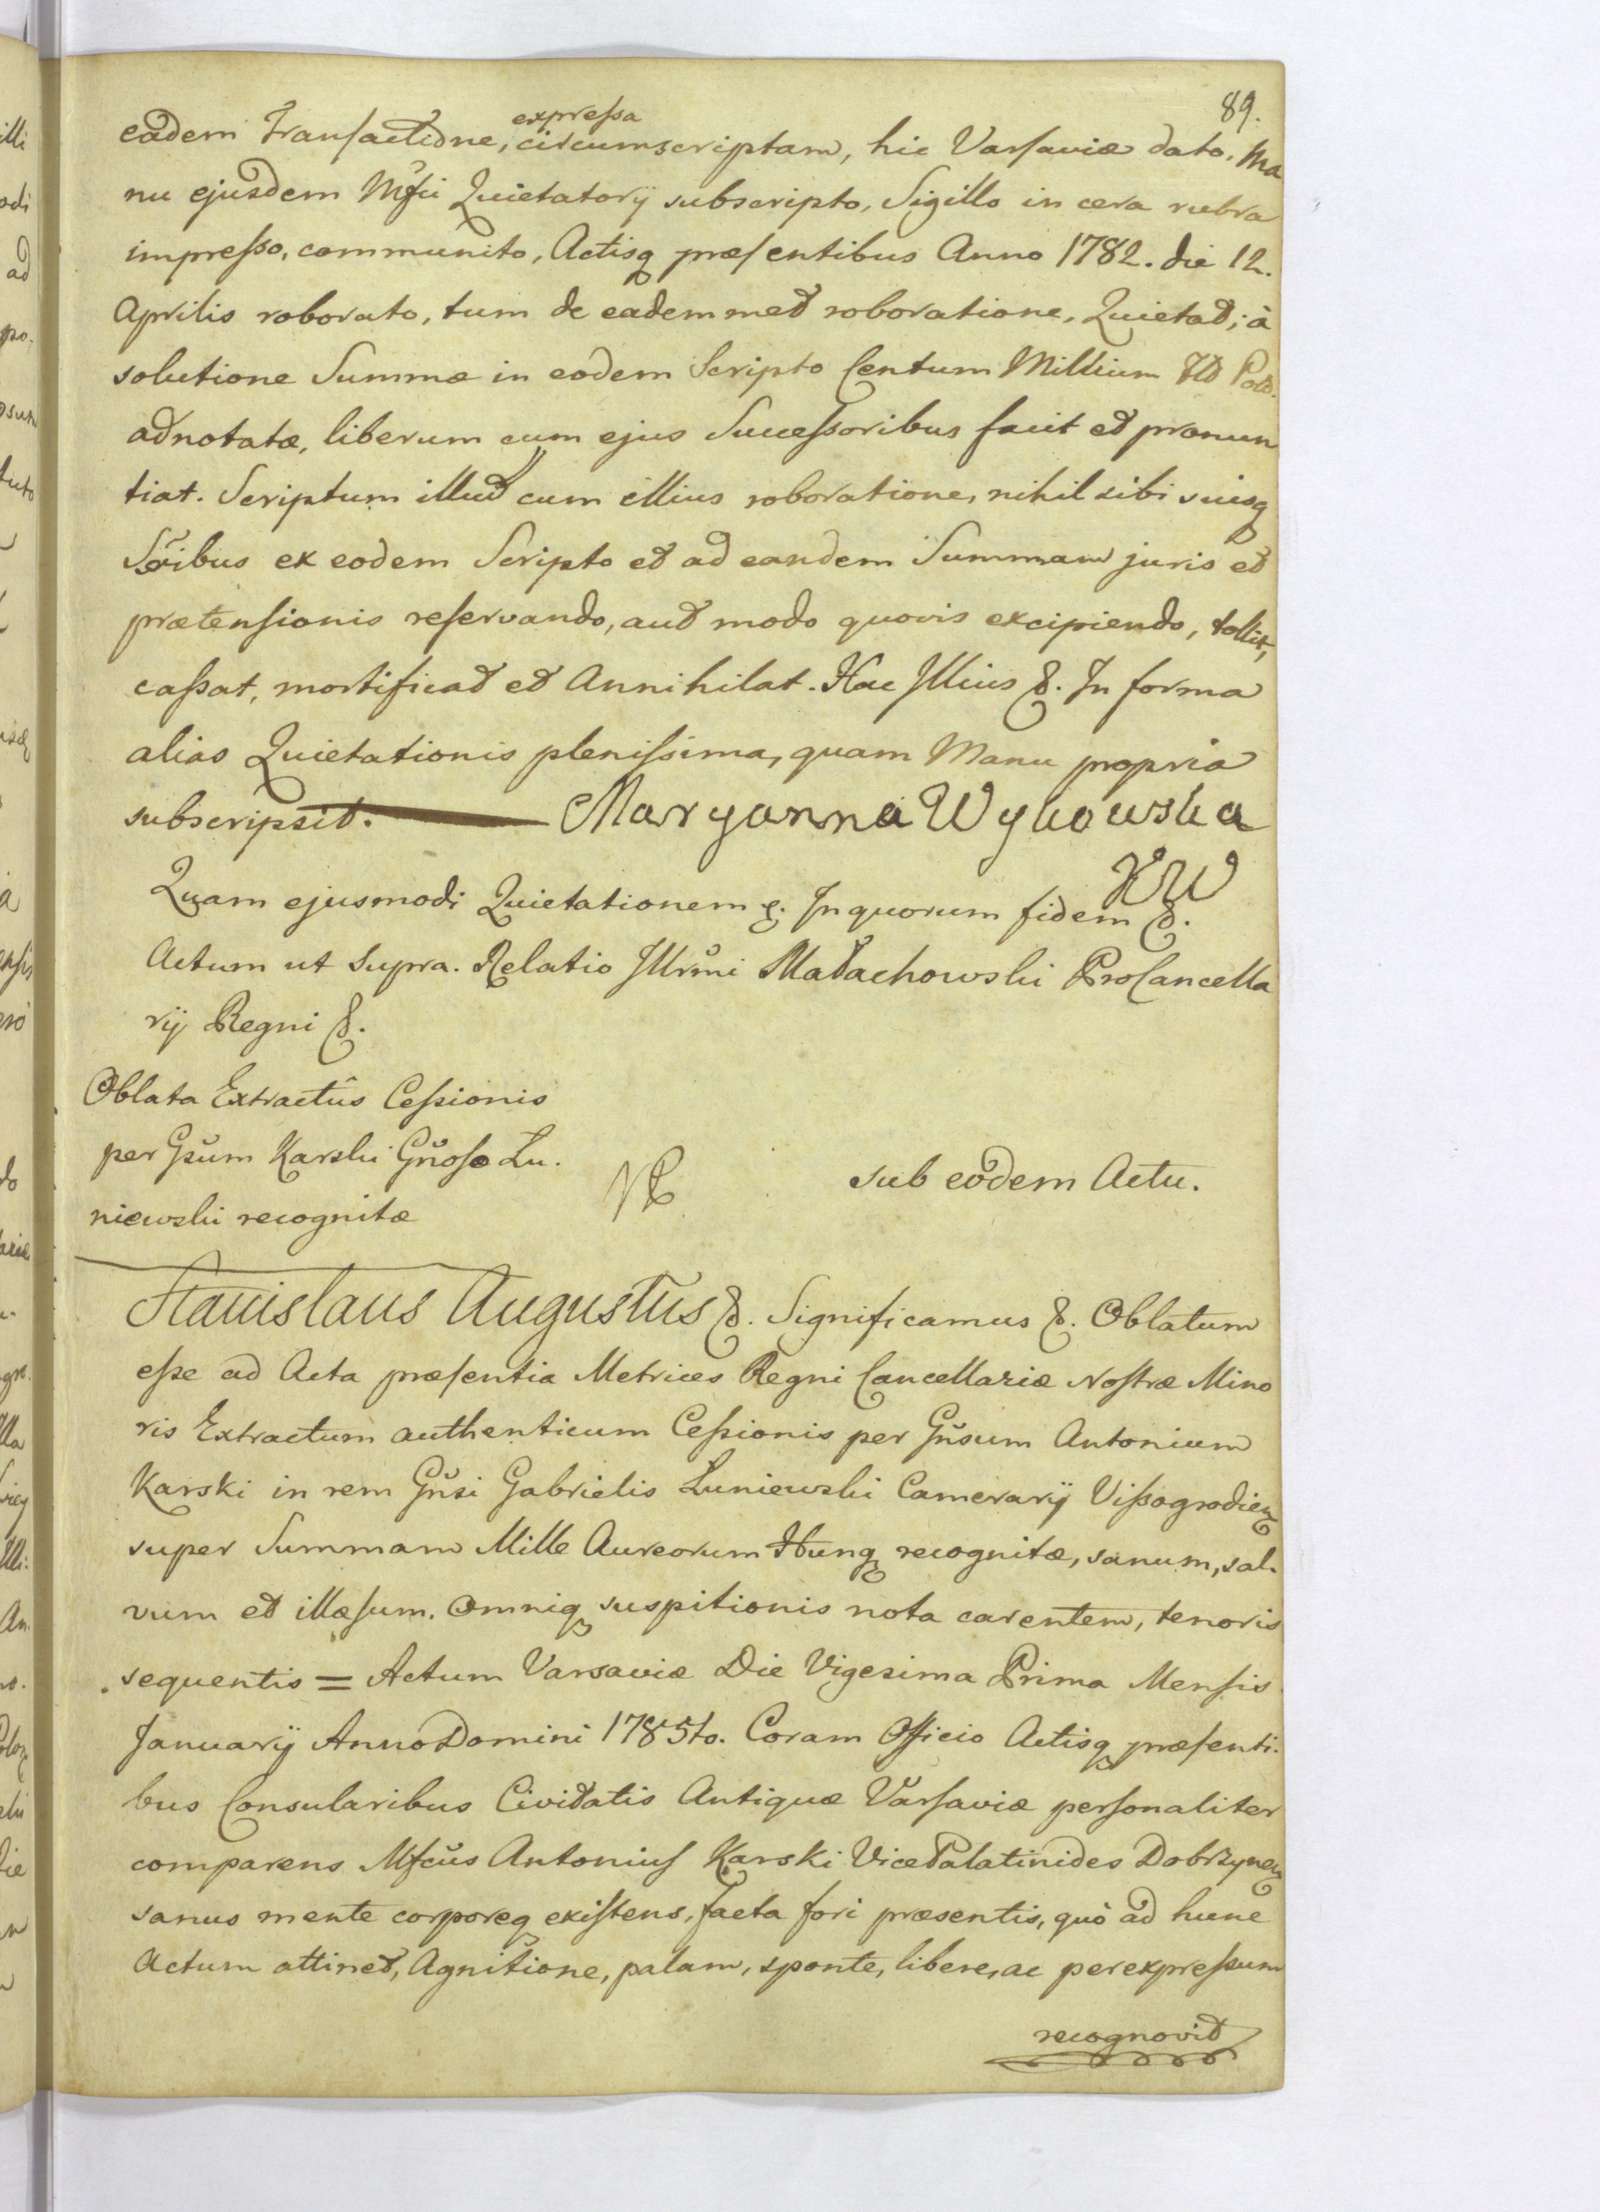 89.
expressa
eadem Transactione, circumscriptam, hic Varsaviæ dato, Ma
nu ejusdem Mfci Quietatorij subscripto, Sigillo in cera rubra
impresso, communito, Actisq præsentibus Anno 1782. die 12.
Aprilis roborato, tum de eademmet roboratione, Quietat; à
solutione Summæ in eodem Scripto Centum Millium Fld Pold.
adnotatæ, liberum cum ejus Successoribus facit et pronun
tiat. Scriptum illud cum illius roboratione, nihil sibi suisq
Sŏribus ex eodem Scripto et ad eandem Summam juris et
prætensionis reservando, aut modo quovis excipiendo, tollit,
cassat, mortificat et Annihilat. Hac Illius &. In forma
alias Quietationis plenissima, quam Manu propria
subscripsit. Maryanna Wykowska
KW
Quam ejusmodi Quietationem &. In quorum fidem &.
Actum ut supra. Relatio Illrmi Małachowski ProCancella
rij Regni &.
Oblata Extractûs Cessionis
per Gsum Karski Gñoso Łu.
niewski recognitæ
sub eodem Actu.
Stanislaus Augustus &. Significamus &. Oblatum
esse ad Acta præsentia Metrices Regni Cancellariæ Nostræ Mino
ris Extractum authenticum Cessionis per Gñsum Antonium
Karski in rem Gñsi Gabrielis Łuniewski Camerarij Vissogrodien
super Summam Mille Aureorum Hung recognitæ, sanum, sal.
vum et illæsum. Omniq suspitionis nota carentem, tenoris
sequentis = Actum Varsaviæ Die Vigesima Prima Mensis
Januarij Anno Domini 1785to. Coram Officio Actisq præsenti.
bus Consularibus Civitatis Antiquæ Varsaviæ personaliter
comparens Mfcus Antonius Karski VicePalatinides Dobrzynen
sanus mente corporeq existens, facta fori præsentis, quò ad hunc
Actum attinet, Agnitione, palam, sponte, libere, ac per expressum
recognovit